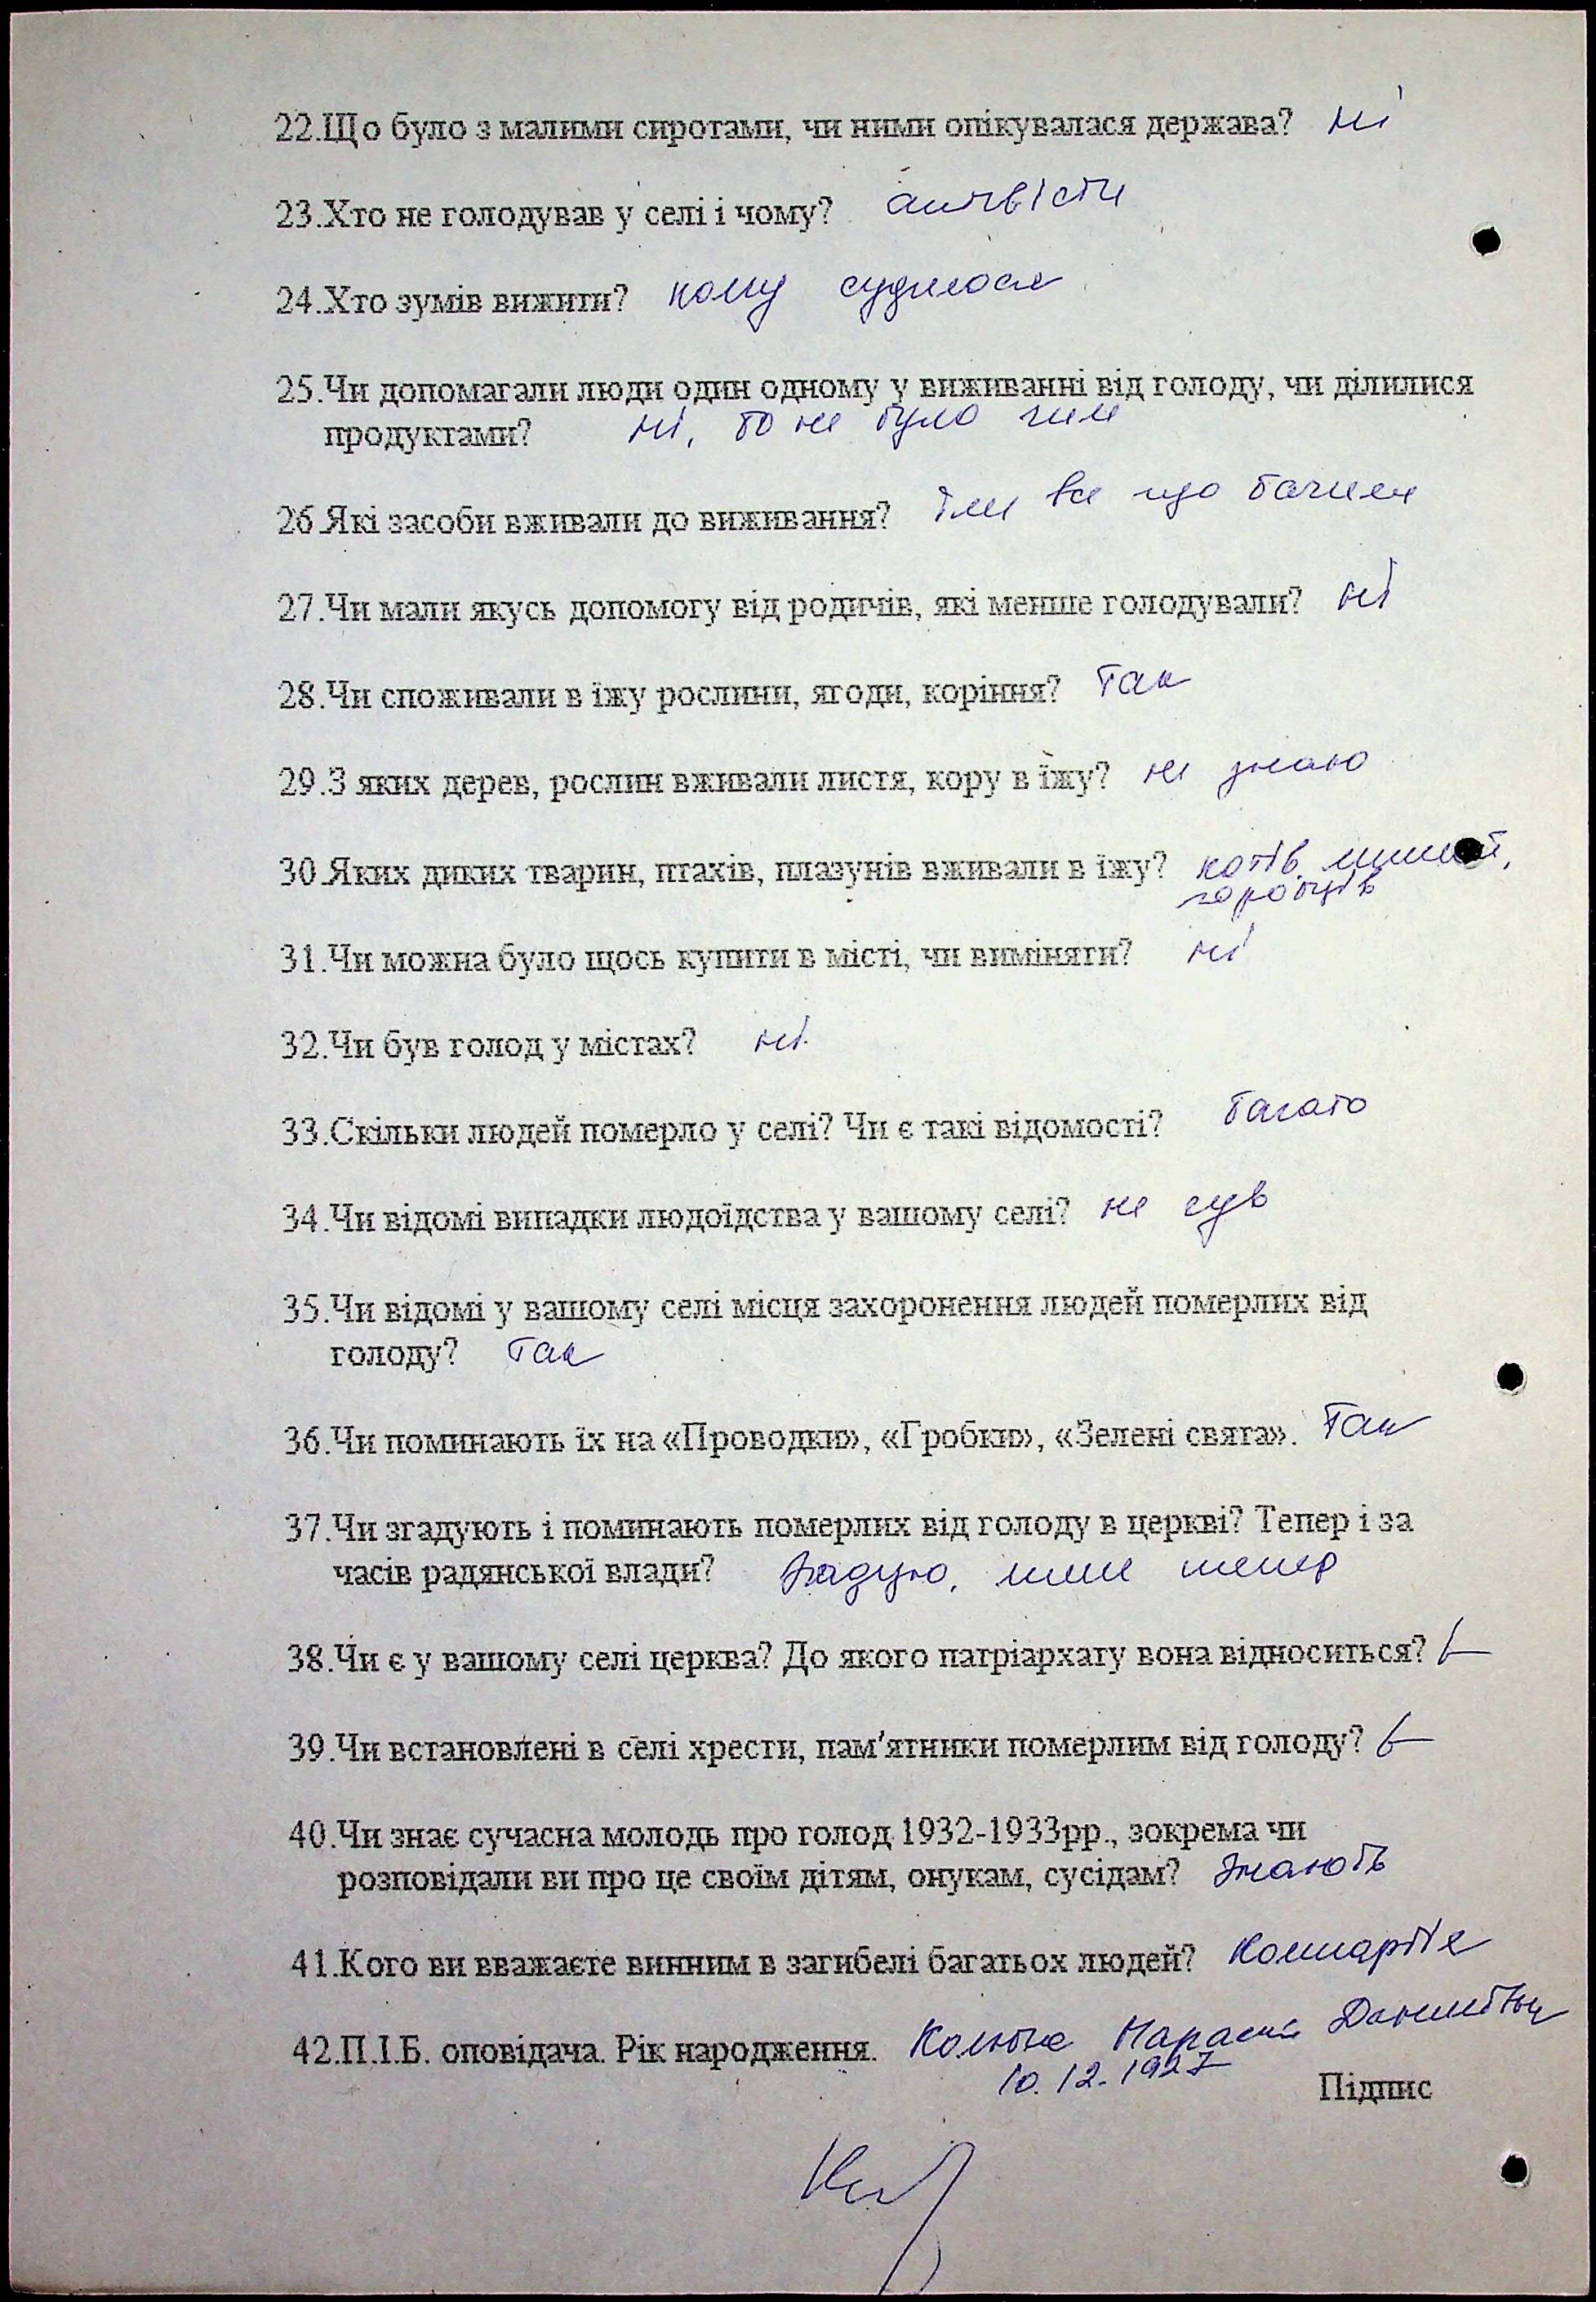 22.Що було з малими сиротами, чи ними опікувалася держава? ні
23.Хто не голодував у селі і чому? активісти
24.Хто зумів вижити? кому судилося
25.Чи допомагали люди один одному у виживанні від голоду, чи ділилися
продуктами? ні, бо не було чим
26.Які засоби вживали до виживання? їли все що бачили
27.Чи мали якусь допомогу від родичів, які менше голодували? ні
28.Чи споживали в їжу рослини, ягоди, коріння? так
29.З яких дерев, рослин вживали листя, кору в їжу? не знаю
30.Яких диких тварин, птахів, плазунів вживали в їжу? котів, мишей,
горобців
31.Чи можна було щось купити в місті, чи виміняти? ні
32.Чи був голод у містах? ні.
33.Скільки людей померло у селі? Чи є такі відомості? багато
34.Чи відомі випадки людоїдства у вашому селі? не чув
35.Чи відомі у вашому селі місця захоронення людей померлих від
голоду? так
36.Чи поминають їх на «Проводки», «Гробки», «Зелені свята». Так
37.Чи згадують і поминають померлих від голоду в церкві? Тепер і за
часів радянської влади? лише тепер
38.Чи є у вашому селі церква? До якого патріархату вона відноситься?
39.Чи встановлені в селі хрести, пам'ятники померлим від голоду?
40.Чи знає сучасна молодь про голод 1932-1933рр., зокрема чи
розповідали ви про це своїм дітям, онукам, сусідам? знають
41.Кого ви вважаєте винним в загибелі багатьох людей? Компартія
42.П.І.Б. оповідача. Рік народження.
10.12.1927
Підпис